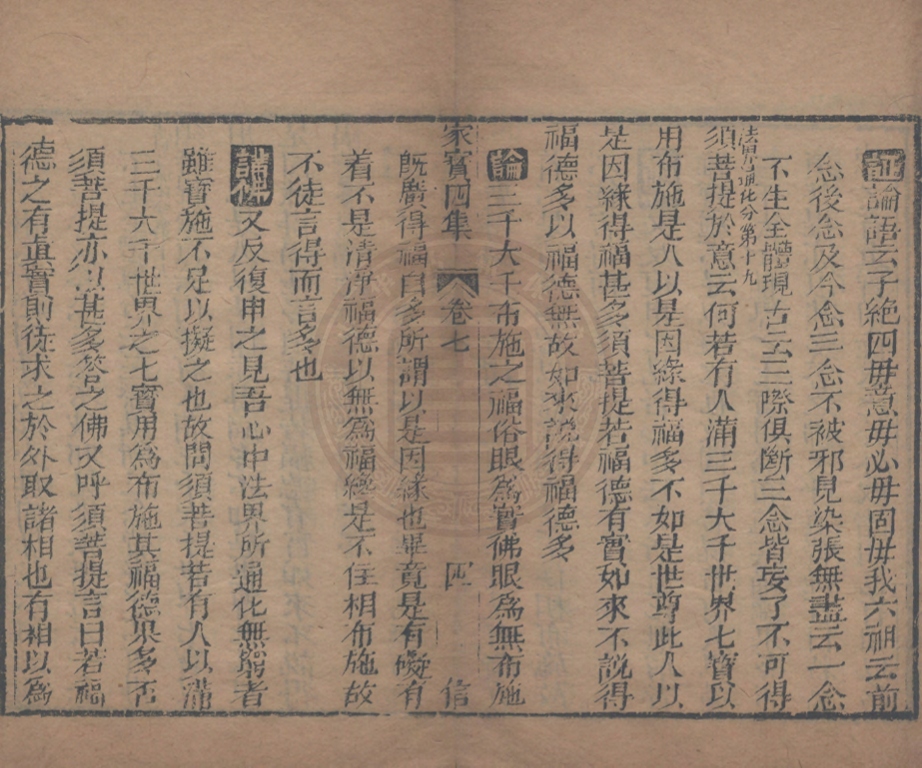 証論語云子絶四毋意毋必毋固毋我六祖云前
念後念及今念三念不被邪見染張無盡云一念
不生全體現古云三際俱斷三念皆妄了不可得
法界通化分第十九
須菩提於意云何若有人滿三千大千世界七寶以
用布施是人以是因緣得福多不如是世尊此人以
是因緣得福甚多須菩提若福德有實如來不說得
福德多以福德無故如來說得福德多
論三千大千布施之福俗眼爲實佛眼爲無布施
家寳四集 卷七 四 信
既廣得福自多所謂以是因緣也畢竟是有礙有
着不是清淨福德以無爲福總是不住相布施故
不徒言得而言多也
講佛又反復申之見吾心中法界所通化無窮者
雖寶施不足以擬之也故問須菩提若有人以滿
三千大千世界之七寶用爲布施其福德果多否
須菩提亦以甚多答之佛又呼須菩提言曰若福
德之有眞實則徒求之於外取諸相也有相以爲